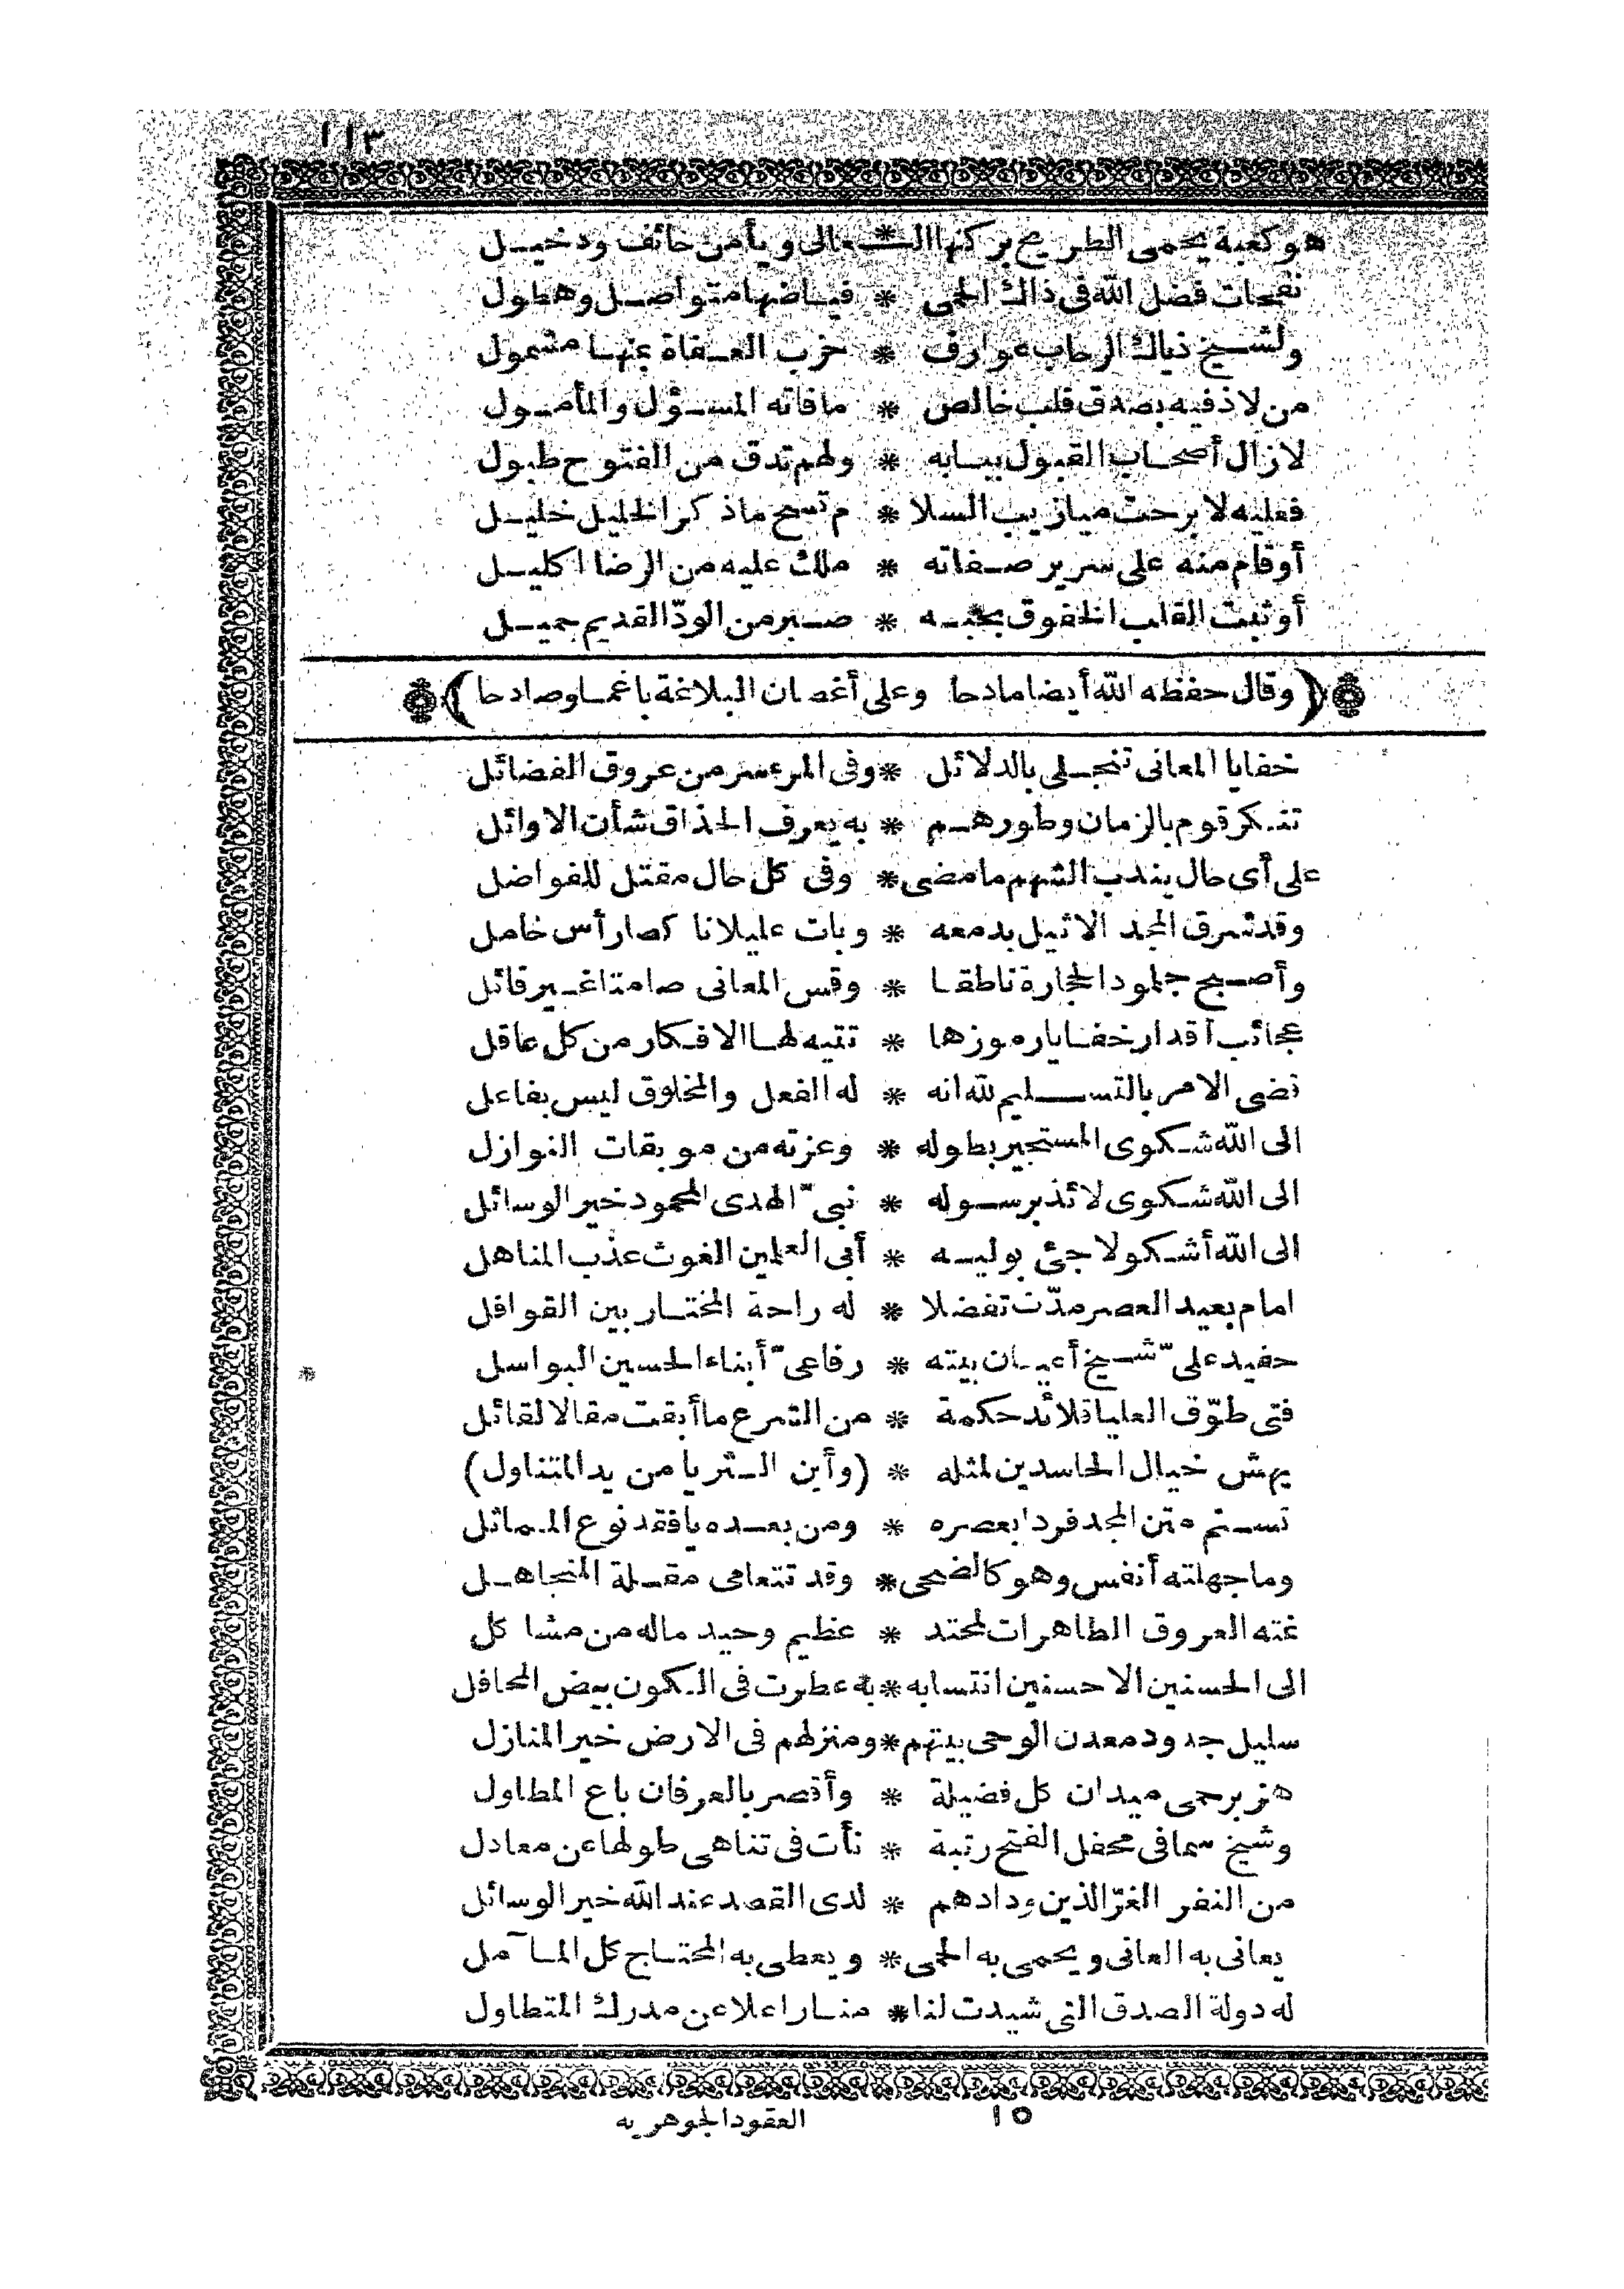 ١١٣
هو كعبة يحمى الطريح بركنها الـ * ـعالى ويأمن خائف ودخيـل
نفحات فضل الله فى ذاك الحمى * فيـاضها متواصـل وهطول
ولشـيخ ذياك الرحاب عوارف * حزب العـفاة بهـا مشمول
من لاذ فيه بصدق قلب خالص * مافاته المسـؤل والمأمـول
لازال أصحـاب القبول ببـابه * ولهم تدق من الفتوح طبول
فعليه لا برحت ميازيب السلا * م تسح ماذكر الخليل خليـل
أوقام منه على سرير صـفاته * ملك عليه من الرضا اكليـل
أو ثبت القلب الخفوق بحبـه * صـبر من الودّ القديم جميـل
﴿وقال حفظه الله أيضا مادحا وعلى أغصان البلاغة باغمـا وصادحا﴾
خفايا المعانى تنجـلى بالدلائل * وفى المرء سر من عروق الفضائل
تفـكر قوم بالزمان وطورهـم * به يعرف الحذاق شأن الاوائل
على أى حال يندب الشهم مامضى * وفى كل حال مقتل للفواضل
وقد شرق المجد الاثيل بدمعه * وبات عليلانا كصارأس خامل
وأصـبح جلمود الحجارة ناطقـا * وقس المعانى صامتا غـير قائل
عجائب أقدار خفـايا رموزها * تتيه لهـا الافـكار من كل عاقل
نضى الامر بالتسـليم لله انه * له الفعل والمخلوق ليس بفاعل
الى الله شـكوى المستجير بطوله * وعزته من موبقات النوازل
الى الله شـكوى لائذ برسـوله * نبىّ الهدى المحمود خير الوسائل
الى الله أشـكو لاجئ بوليـه * أبى العلمين الغوث عذب المناهل
امام بعيد العصر مدّت تفضلا * له راحة المختـار بين القوافل
حفيد علىّ شـيخ أعيـان بيته * رفاعىّ أبناء الحسين البواسل
فتى طوّق العليا قلائد حكمة * من الشرع ما أبقت مقالا لقائل
يهش خيال الحاسدين لمثله * (وأين الـثريا من يد المتناول)
تسـنم متن المجد فردا بعصره * ومن بعـده يافقد نوع المـماثل
وماجهلته أنفس وهو كالضحى * وقد تتعامى مقـلة المتجاهـل
نمته العروق الطاهرات لمحتد * عظيم وحيد ماله من مشاكل
الى الحسنين الاحسنين انتسابه * به عطرت فى الـكون بيض المحافل
سليل جدود معدن الوحى بيتهم * ومنزلهم فى الارض خير المنازل
هزبر حمى ميدان كل فضيلة * وأقصر بالعرفان باع المطاول
وشيخ سما فى محفل الفتح رتبة * نأت فى تناهى طولها عن معادل
من النفر الغرّ الذين ودادهم * لدى القصد عند الله خير الوسائل
يعانى به العانى ويحمى به الحمى * ويعطى به المحتـاج كل المـآمل
له دولة الصدق التى شيدت لنا * منـارا علا عن مدرك المتطاول
١٥ العقود الجوهريه